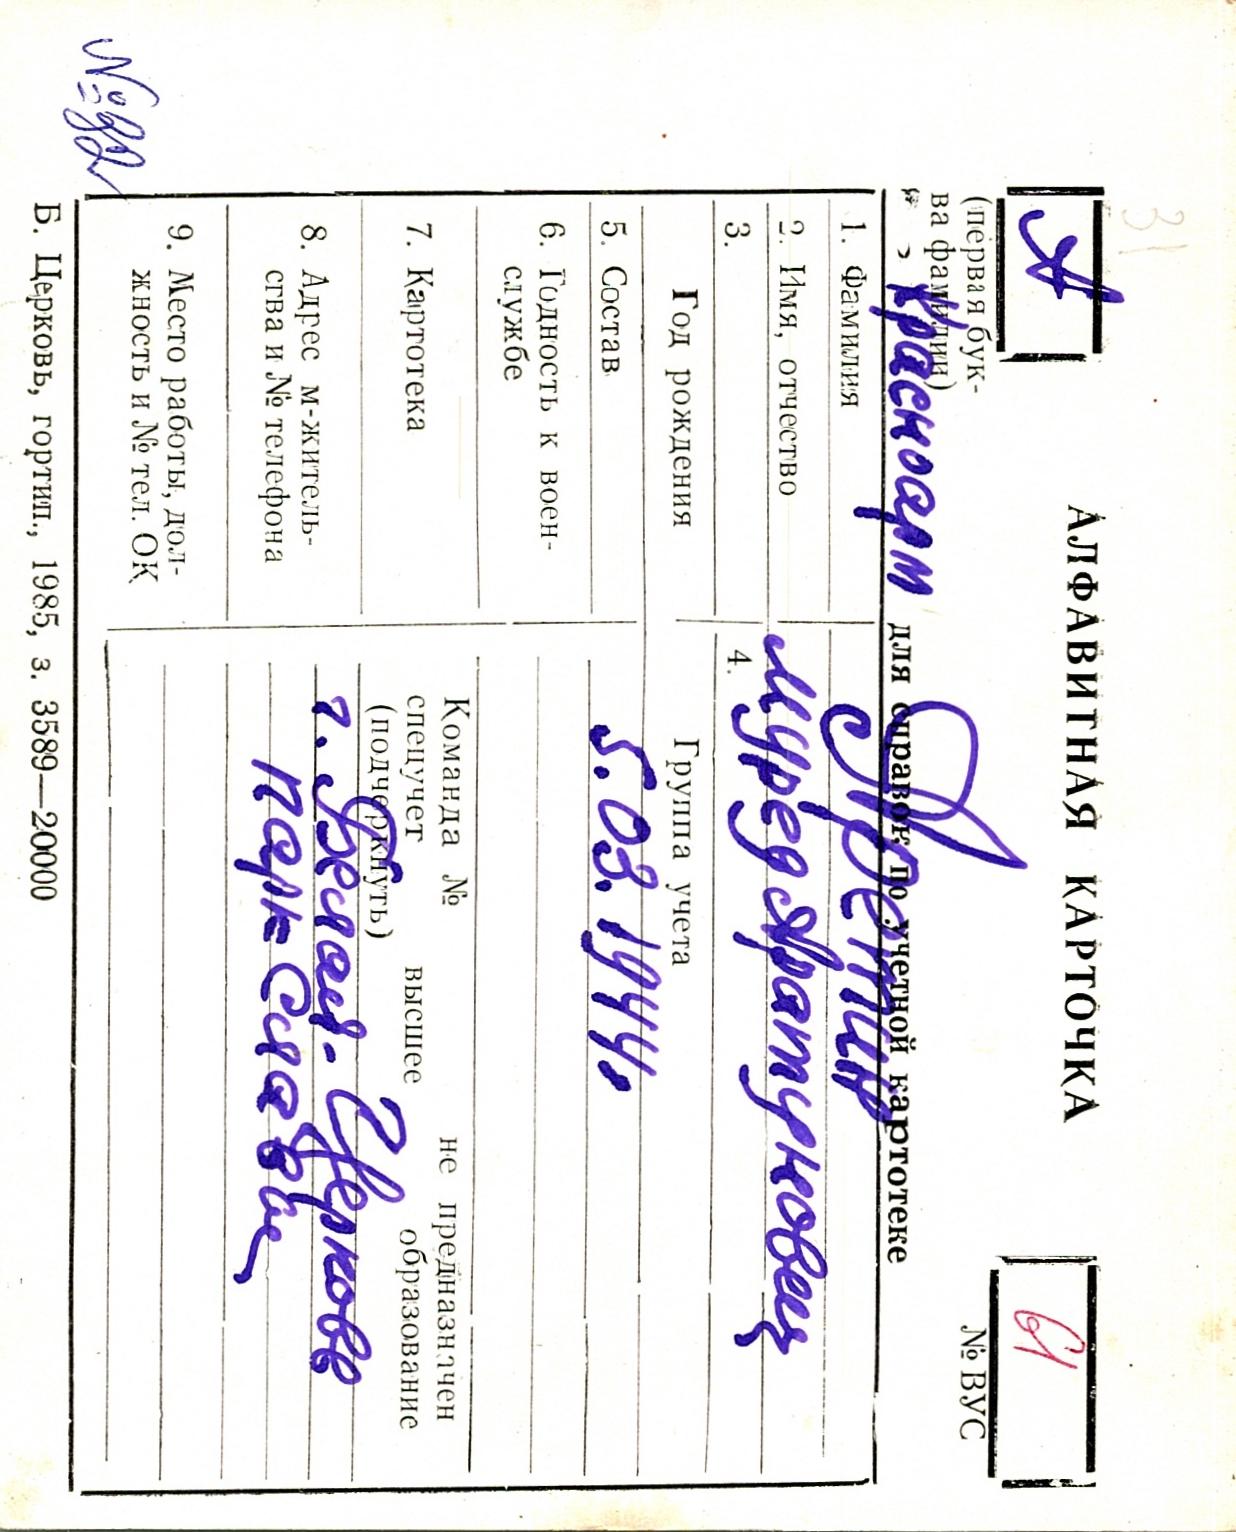 31
А
АЛФАВИТНАЯ КАРТОЧКА
61
(первая бук-
ва фамилии)
№ ВУС
Красноарм
для справок по учетной картотеке
1. Фамилия
2. Имя, отчество
Мурад Аратункович
3.
Год рождения
4.
Группа учета
5. Состав
5.03.1944.
6. Годность к воен-
службе
7. Картотека
Команда № не предназначен
спецучет высшее образование
(подчеркнуть)
8. Адрес м-житель-
ства и № телефона
г. Белая-Церковь
парк-Славы
9. Место работы, дол-
жность и № тел. ОК
Б. Церковь, гортип., 1985, з. 3589—20000